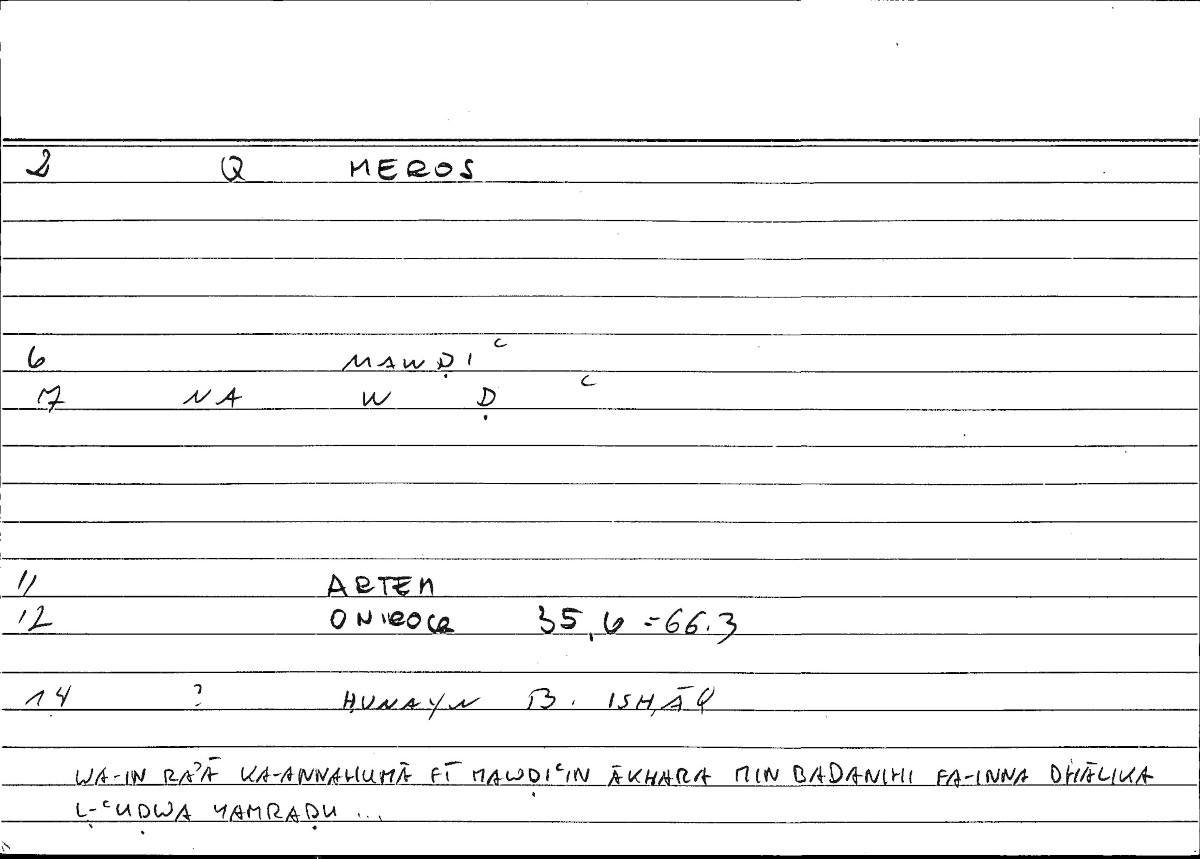 2 Q MEROS
6 MAWḌIʿ
17 NA W Ḍ ʿ
11 ARTEM
12 ONIROCR 35,6 = 66.3
14 ? ḤUNAYN B. ISḤĀQ
WA-IN RAʾĀ KA-ANNAHUMĀ FĪ MAWḌIʿIN ĀKHARA MIN BADANIHI FA-INNA DHĀLIKA
L-ʿUḌWA YAMRAḌU ...